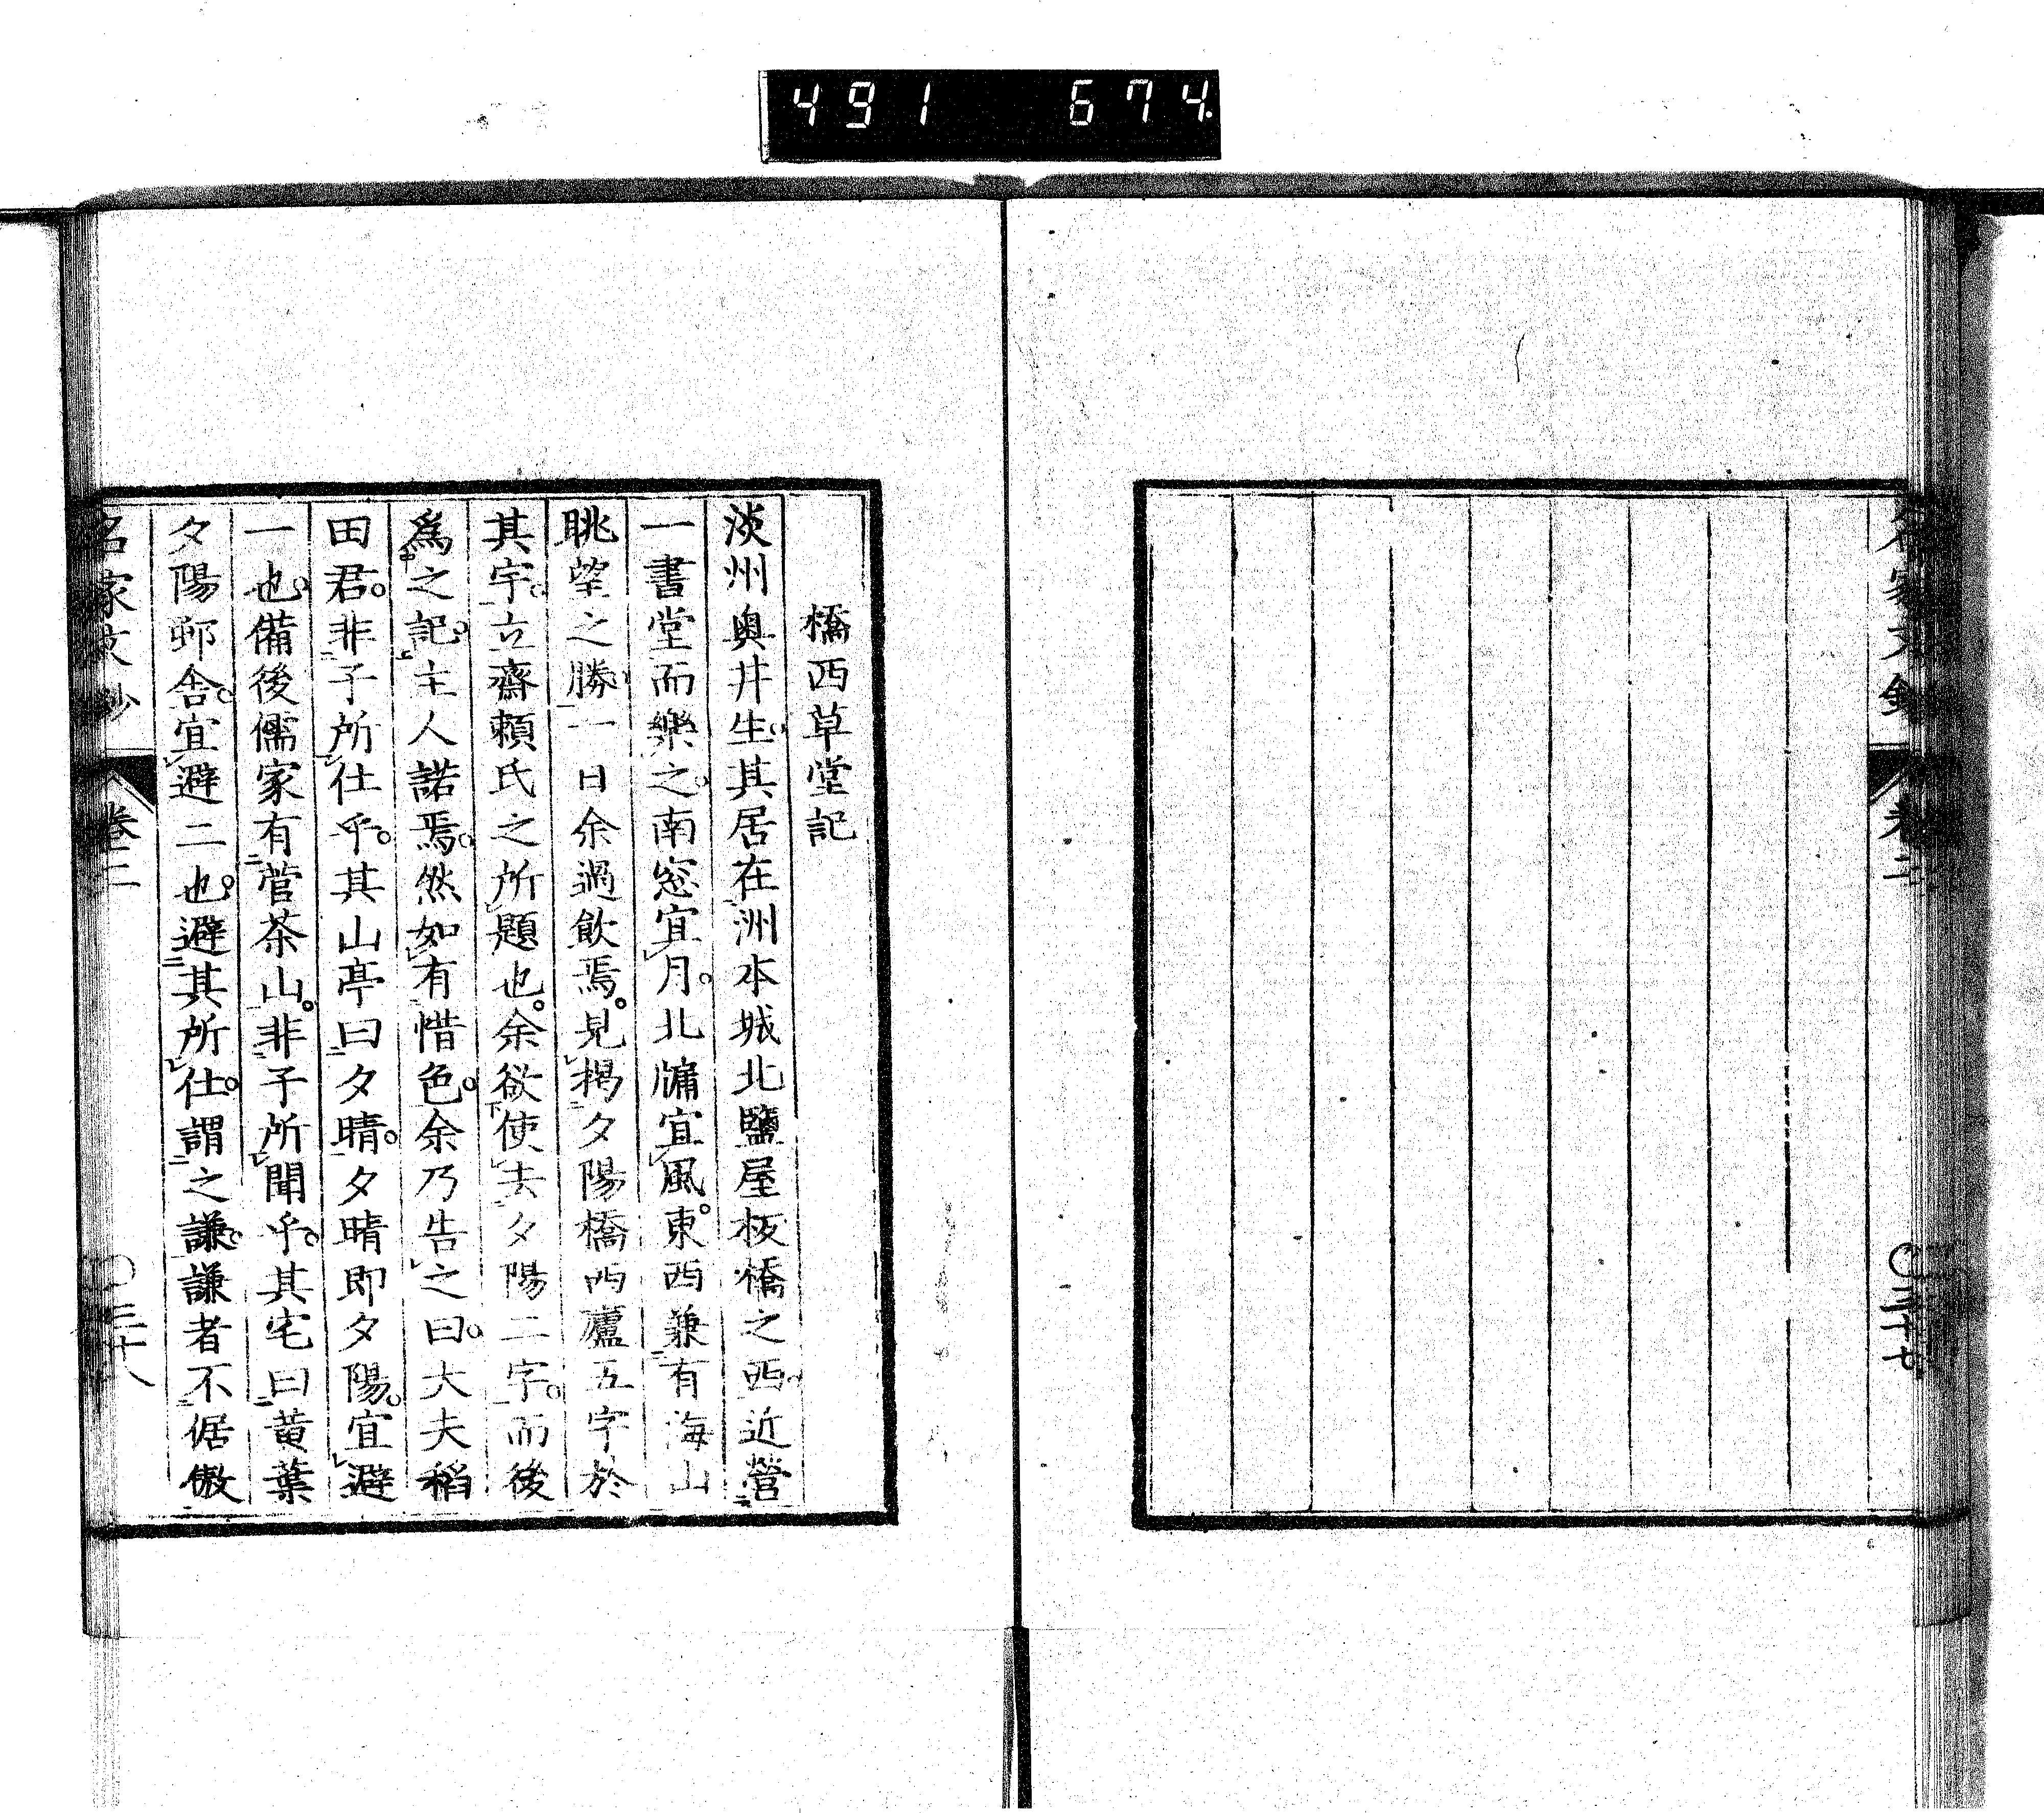 491 674
名家文鈔 卷二 〇三十七
橋西草堂記
淡州奥井生。其居在洲本城北鹽屋板橋之西。近營
一書堂而樂之。南窓宜月。北牗宜風。東西兼有海山
眺望之勝。一日余過飲焉。見揭夕陽橋西廬五字於
其宇。立齋頼氏之所題也。余欲使去夕陽二字。而後
爲之記。主人諾焉。然如有惜色。余乃告之曰。大夫稻
田君。非子所仕乎。其山亭曰夕晴。夕晴即夕陽。宜避
一也。備後儒家有菅茶山。非子所聞乎。其宅曰黄葉
夕陽邨舎。宜避二也。避其所仕。謂之謙。謙者不倨傲
名家文鈔 卷二 〇三十八